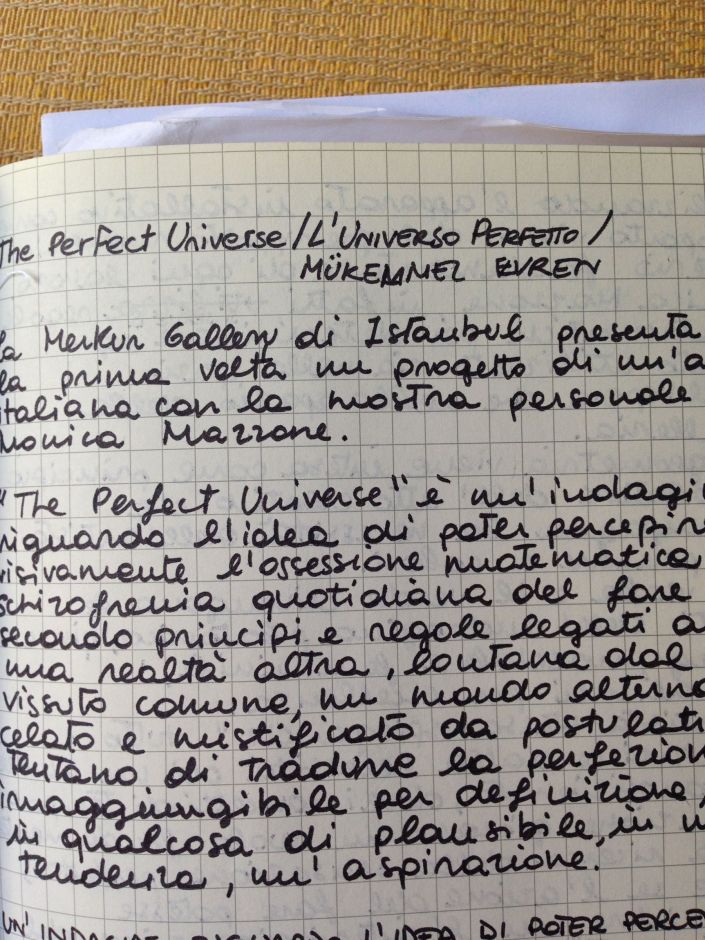 The Perfect Universe / L'UNIVERSO PERFETTO /
MÜKEMMEL EVREN
la Merkur Gallery di Istanbul presenta
la prima volta un progetto di un'a
italiana con la mostra personale
Monica Mazzone.
"The Perfect Universe" è un'indagi
riguardo l'idea di poter percepir
visivamente l'ossessione matematica,
schizofrenia quotidiana del fare
secondo principi e regole legati a
una realtà altra, lontana dal
vissuto comune, un mondo alterna
celato e mistificato da postulati
tentano di tradurre la perfezion
irraggiungibile per definizione,
in qualcosa di plausibile, in u
tendenza, un'aspirazione.
UN'INDAGINE RIGUARDO L'IDEA DI POTER PERCE